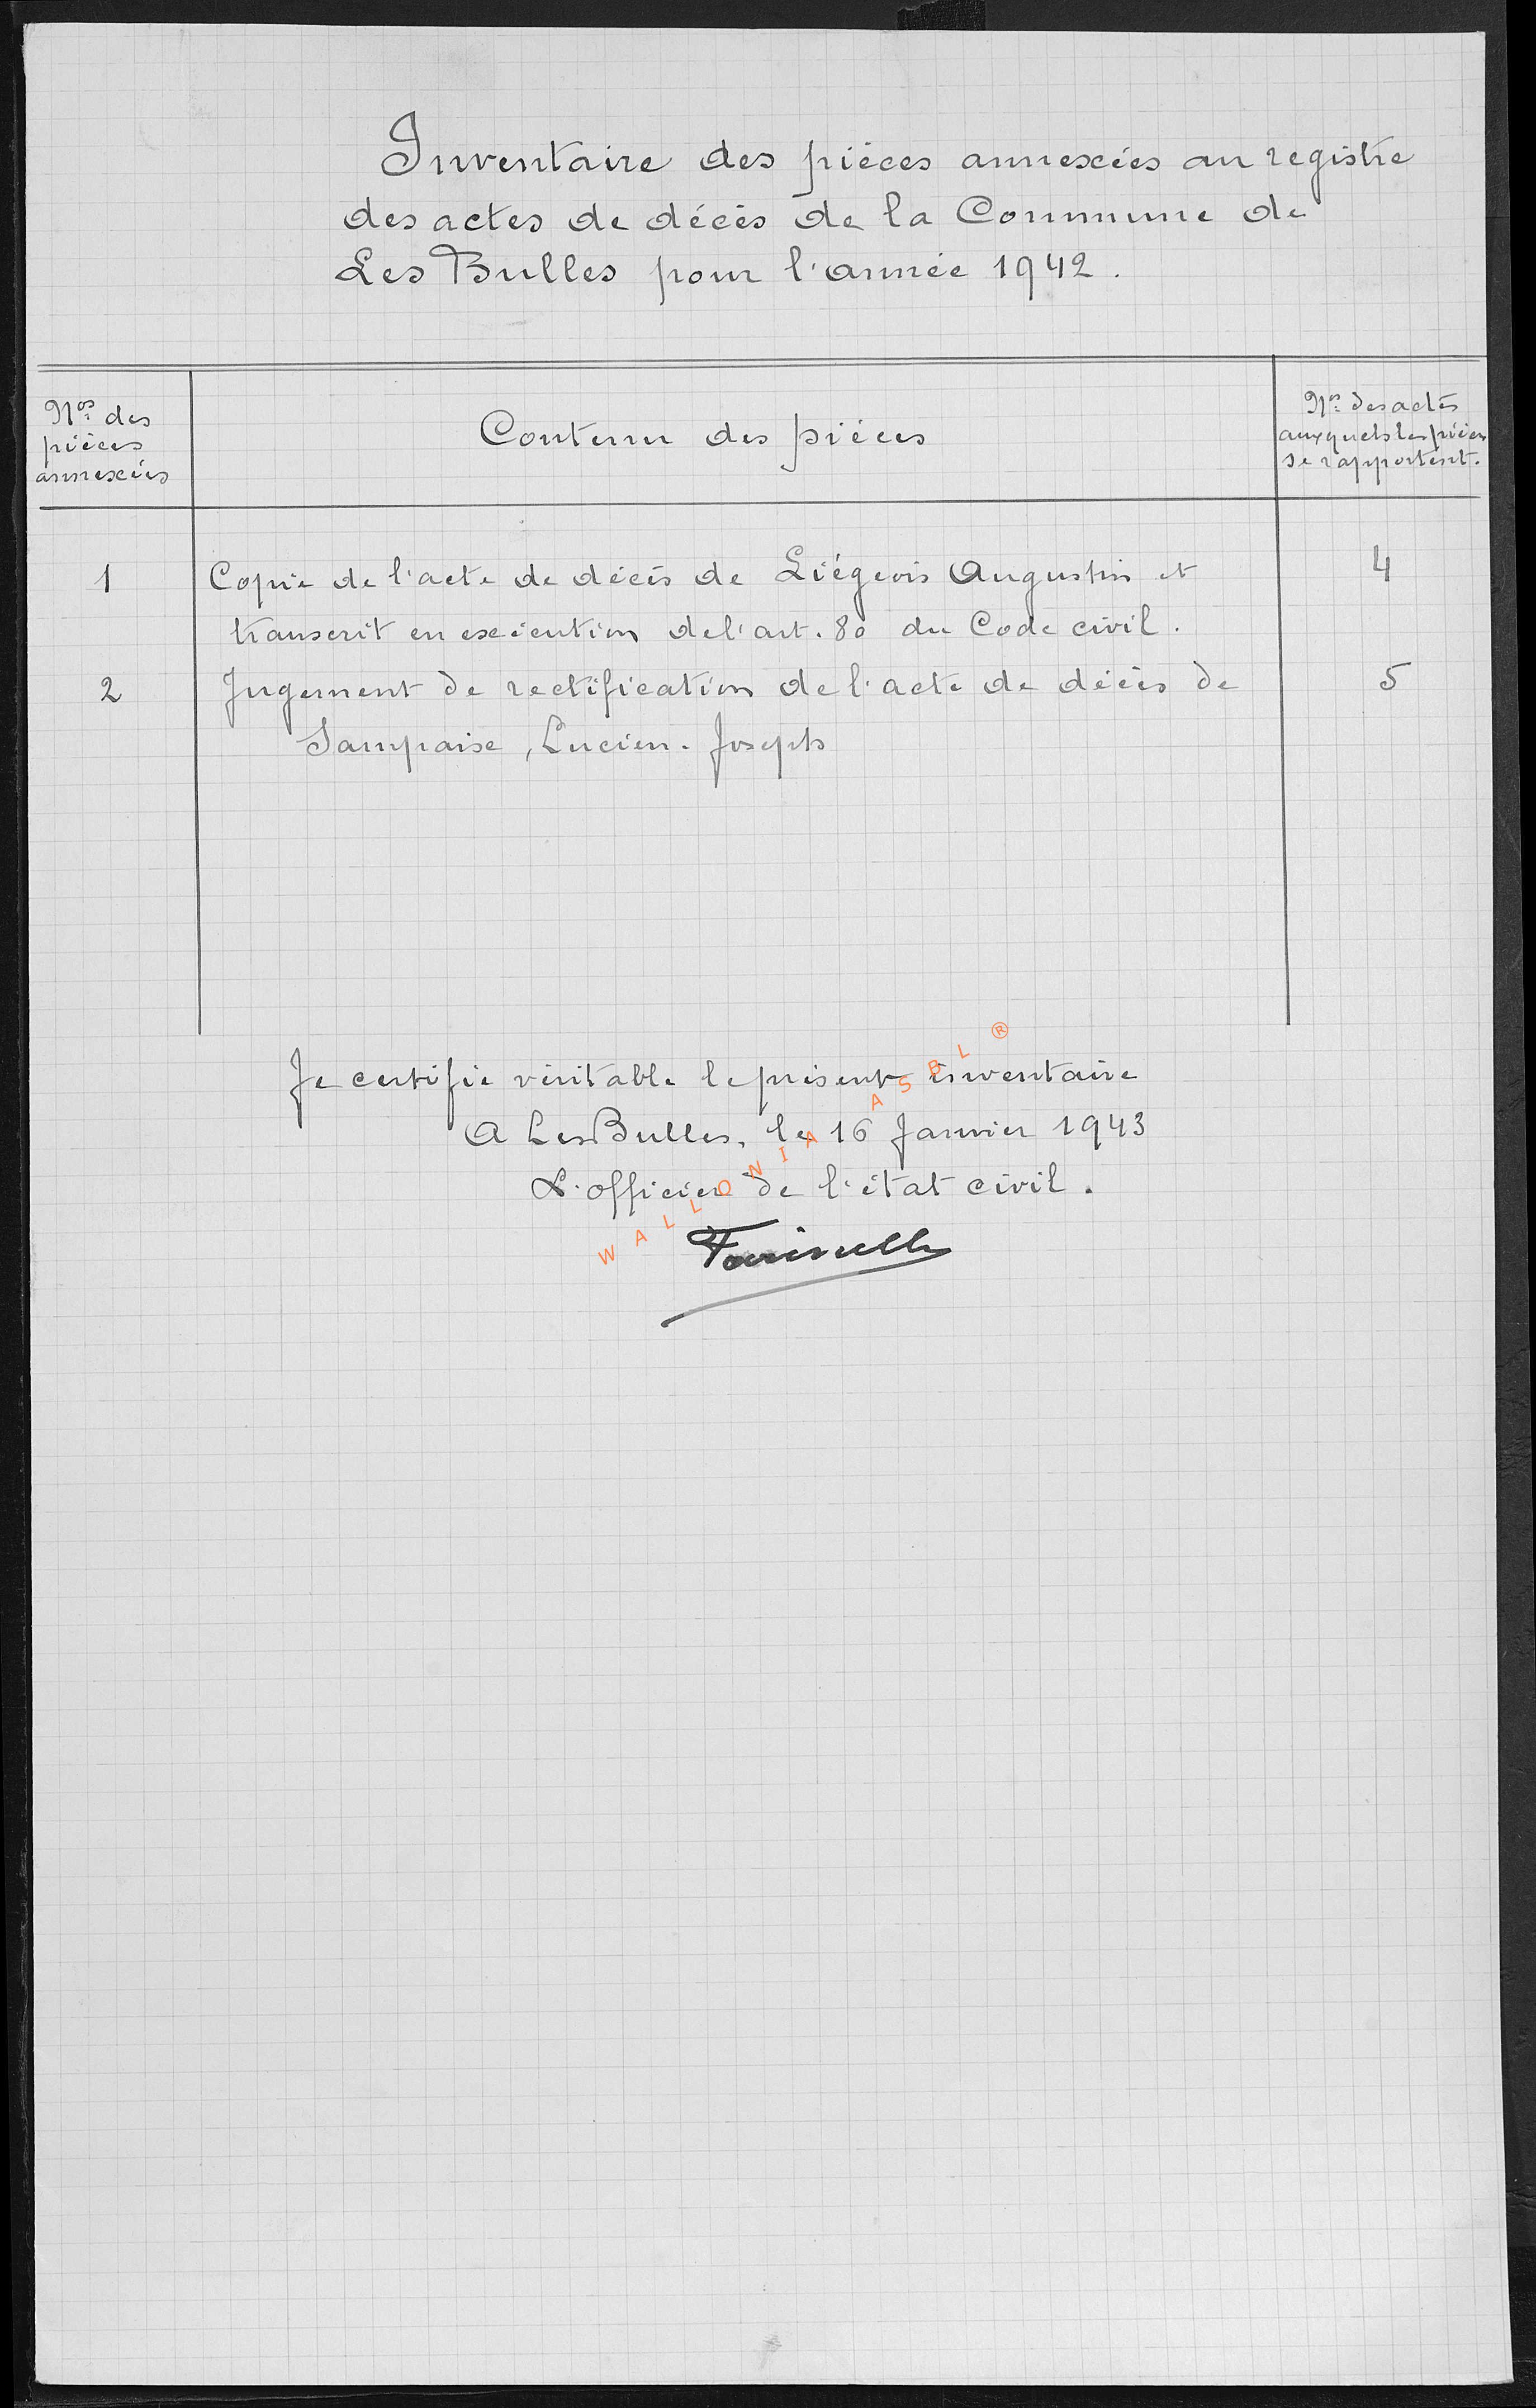 Inventaire des pièces annexées au registre
des actes de décès de la Commune de
Les Bulles pour l'année 1942.
Nos des
pièces
annexées
Contenu des pièces
Nos des actes
auxquels les pièces
se rapportent.
1 Copie de l'acte de décès de Liégeois Augustin et 4
transcrit en exécution de l'art. 80 du Code civil.
2 Jugement de rectification de l'acte de décès de 5
Sampaise, Lucien-Joseph
Je certifie véritable le présent inventaire
A Les Bulles, le 16 Janvier 1943
L'officier de l'état civil.
WALLONIA ASBL ®